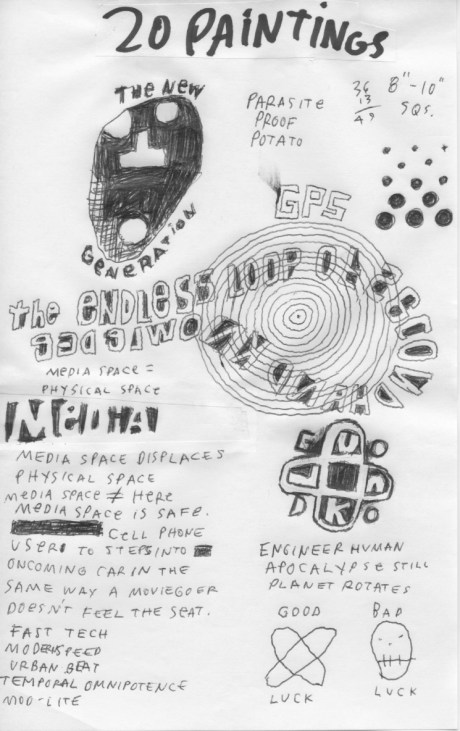 20 PAINTINGS
THE NEW
GENERATION
PARASITE
PROOF
POTATO
36
13
49
8"-10"
SQS.
GPS
the ENDLESS LOOP OF SECOND HAND
MEDIA SPACE =
PHYSICAL SPACE
MEDIA
MEDIA SPACE DISPLACES
PHYSICAL SPACE
MEDIA SPACE ≠ HERE
MEDIA SPACE IS SAFE.
CELL PHONE
USER TO STEPS INTO
ONCOMING CAR IN THE
SAME WAY A MOVIEGOER
DOESN'T FEEL THE SEAT.
FAST TECH
MODERSPEED
URBAN BEAT
TEMPORAL OMNIPOTENCE
MOD-LITE
G U O
J n
D K O
ENGINEER HUMAN
APOCALYPSE STILL
PLANET ROTATES
GOOD
LUCK
BAD
LUCK